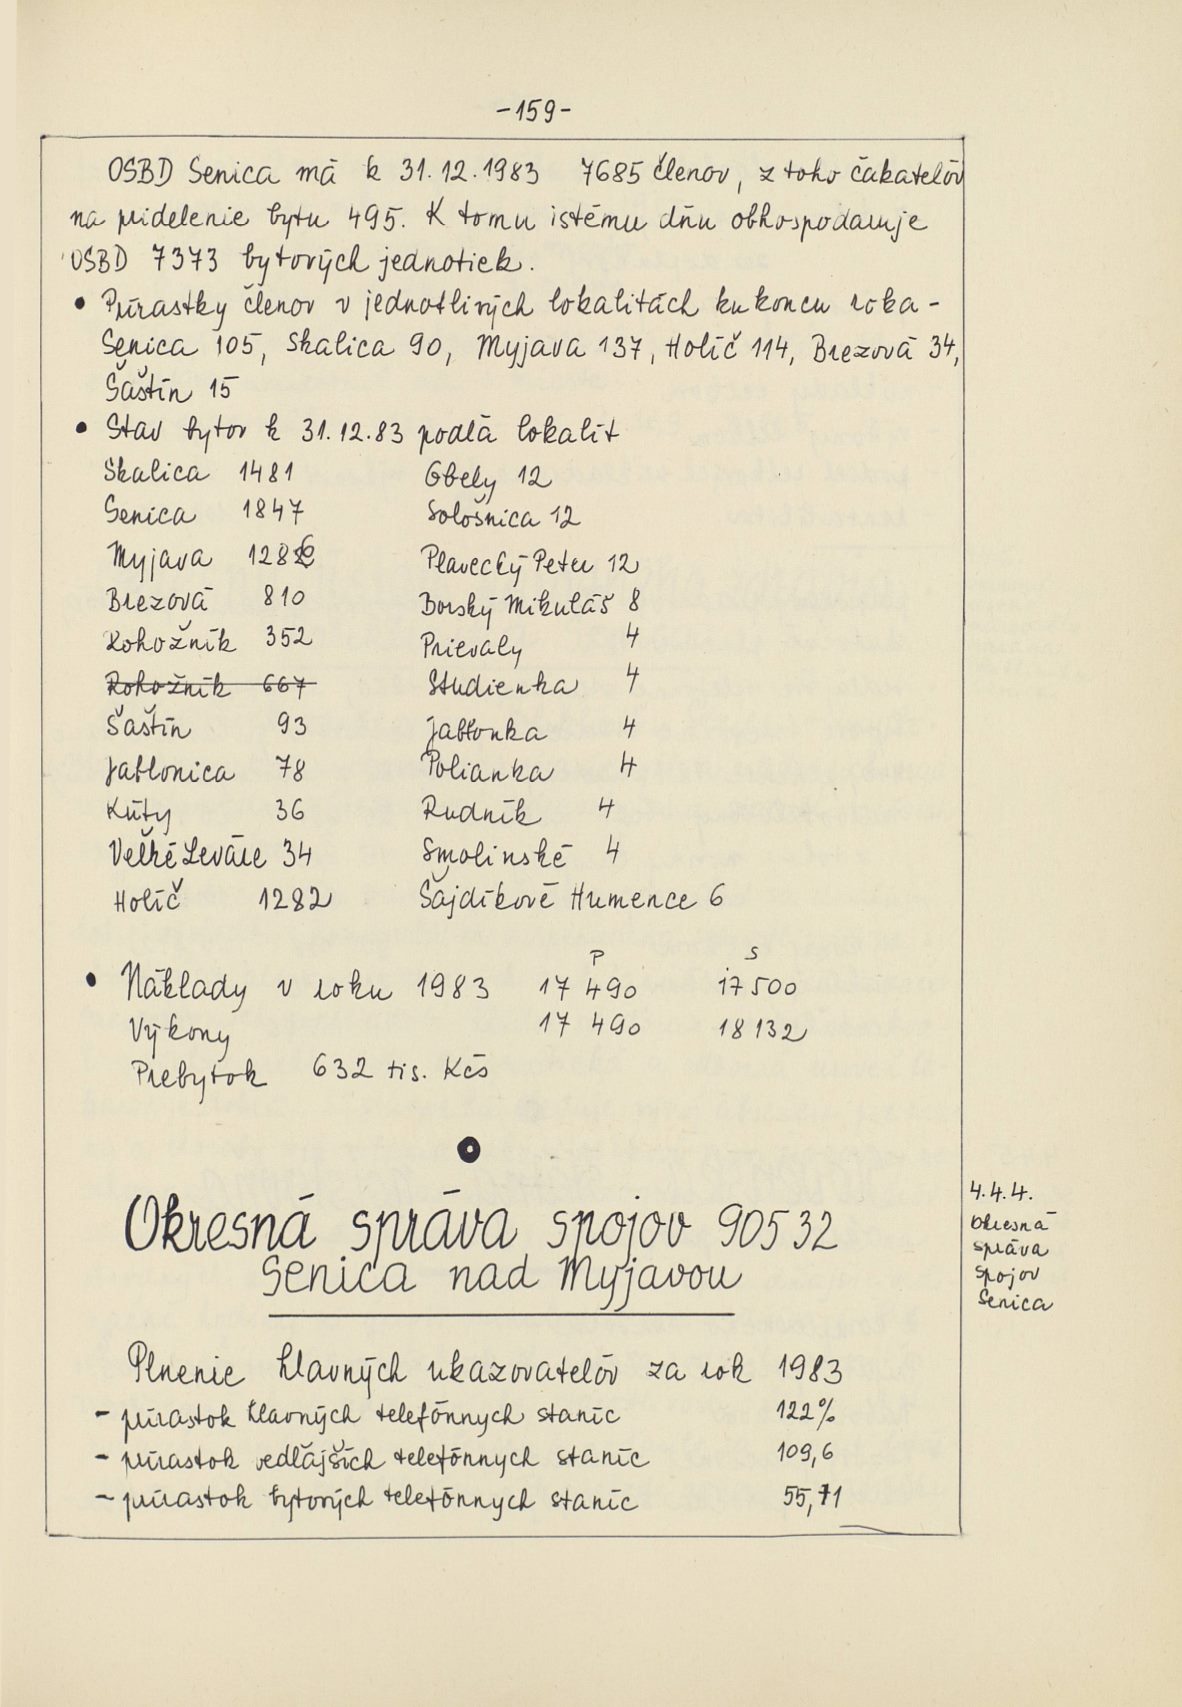 -159-
OSBD Senica má k 31.12.1983 7685 členov, z toho čakatelóv
na pridelenie bytu 495. K tomu istému dňu obhospodaruje
OSBD 7373 bytových jednotiek.
• Prírastky členov v jednotlivých lokalitách ku koncu roka -
Senica 105, Skalica 90, Myjava 137, Holíč 114, Brezová 34,
Šaštín 15
• Stav bytov k 31.12.83 podľa lokalít
Skalica 1481 Gbely 12
Senica 1847 Sološnica 12
Myjava 1286 Plavecký Peter 12
Brezová 810 Borský Mikuláš 8
Rohožník 352 Prievaly 4
Rohožník 667 Studienka 4
Šaštín 93 Jablonka 4
Jablonica 78 Polianka 4
Kúty 36 Rudník 4
Veľké Leváre 34 Smolinské 4
Holíč 1282 Šajdíkové Humence 6
P S
• Náklady v roku 1983 17 490 17 500
Výkony 17 490 18 132
Prebytok 632 tis. Kčs
Okresná správa spojov 905 32
Senica nad Myjavou
4.4.4.
Okresná
správa
spojov
Senica
Plnenie hlavných ukazovatelóv za rok 1983
- prírastok hlavných telefónnych staníc 122%
- prírastok vedľajších telefónnych staníc 109,6
- prírastok bytových telefónnych staníc 55,71